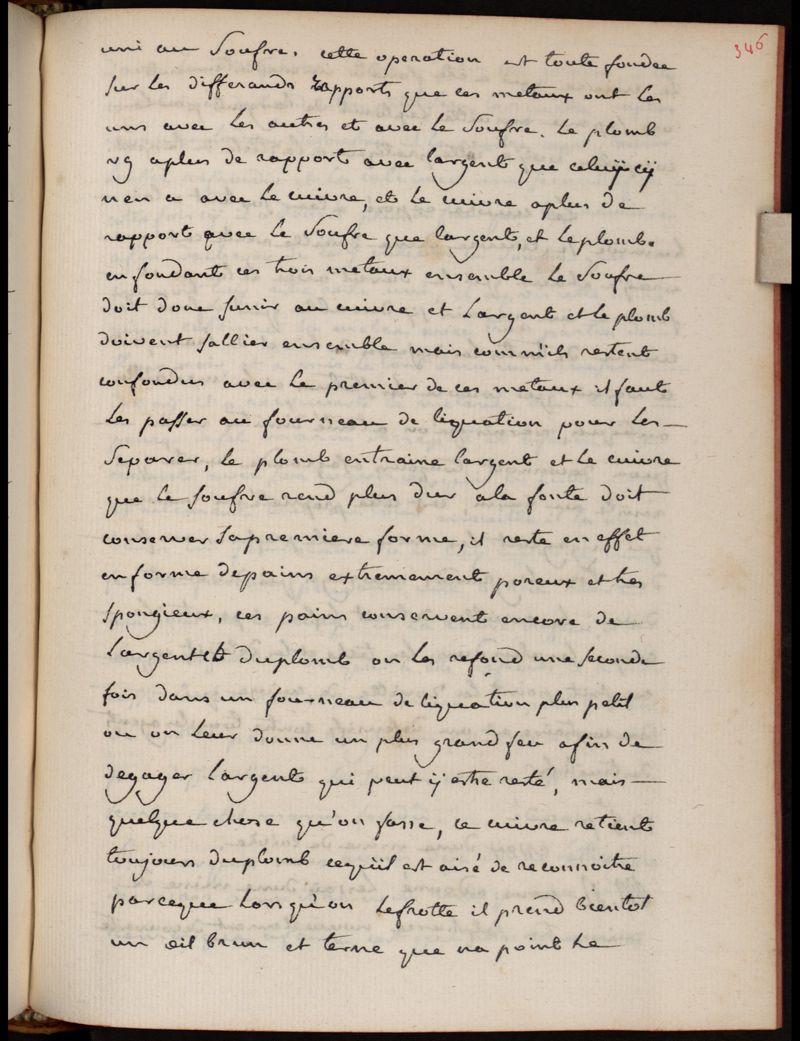 346
uni au Soufre. cette operation est toute fondee
sur les differands rapports que ces metaux ont les
uns avec les autres et avec le Soufre. le plomb
aplus de rapport avec largent que celuy cy
nen a avec le cuivre, et le cuivre aplus de
rapport avec le Soufre que largent, et le plomb.
en fondant ces trois metaux ensemble le Soufre
doit donc sunir au cuivre et largent et le plomb
doivent sallier ensemble mais comm'ils restent
confondus avec le premier de ces metaux il faut
les passer au fourneau de liquation pour les
Separer, le plomb entraine largent et le cuivre
que le soufre rend plus dur ala fonte doit
conserver sapremiere forme, il reste en effet
en forme depains extremement poreux et tres
spongieux, ces pains conservent encore de
largent et duplomb on les refond une seconde
fois dans un fourneau de liquation plus petit
ou on leur donne un plus grand feu afin de
degager largent qui peut ÿ estre resté, mais
quelque chose qu'on fasse, ce cuivre retient
toujours duplomb cequ'il est aisé de reconnoitre
parceque lorsqu'on lefrotte il prend bientot
un œil brun et terne que na point le